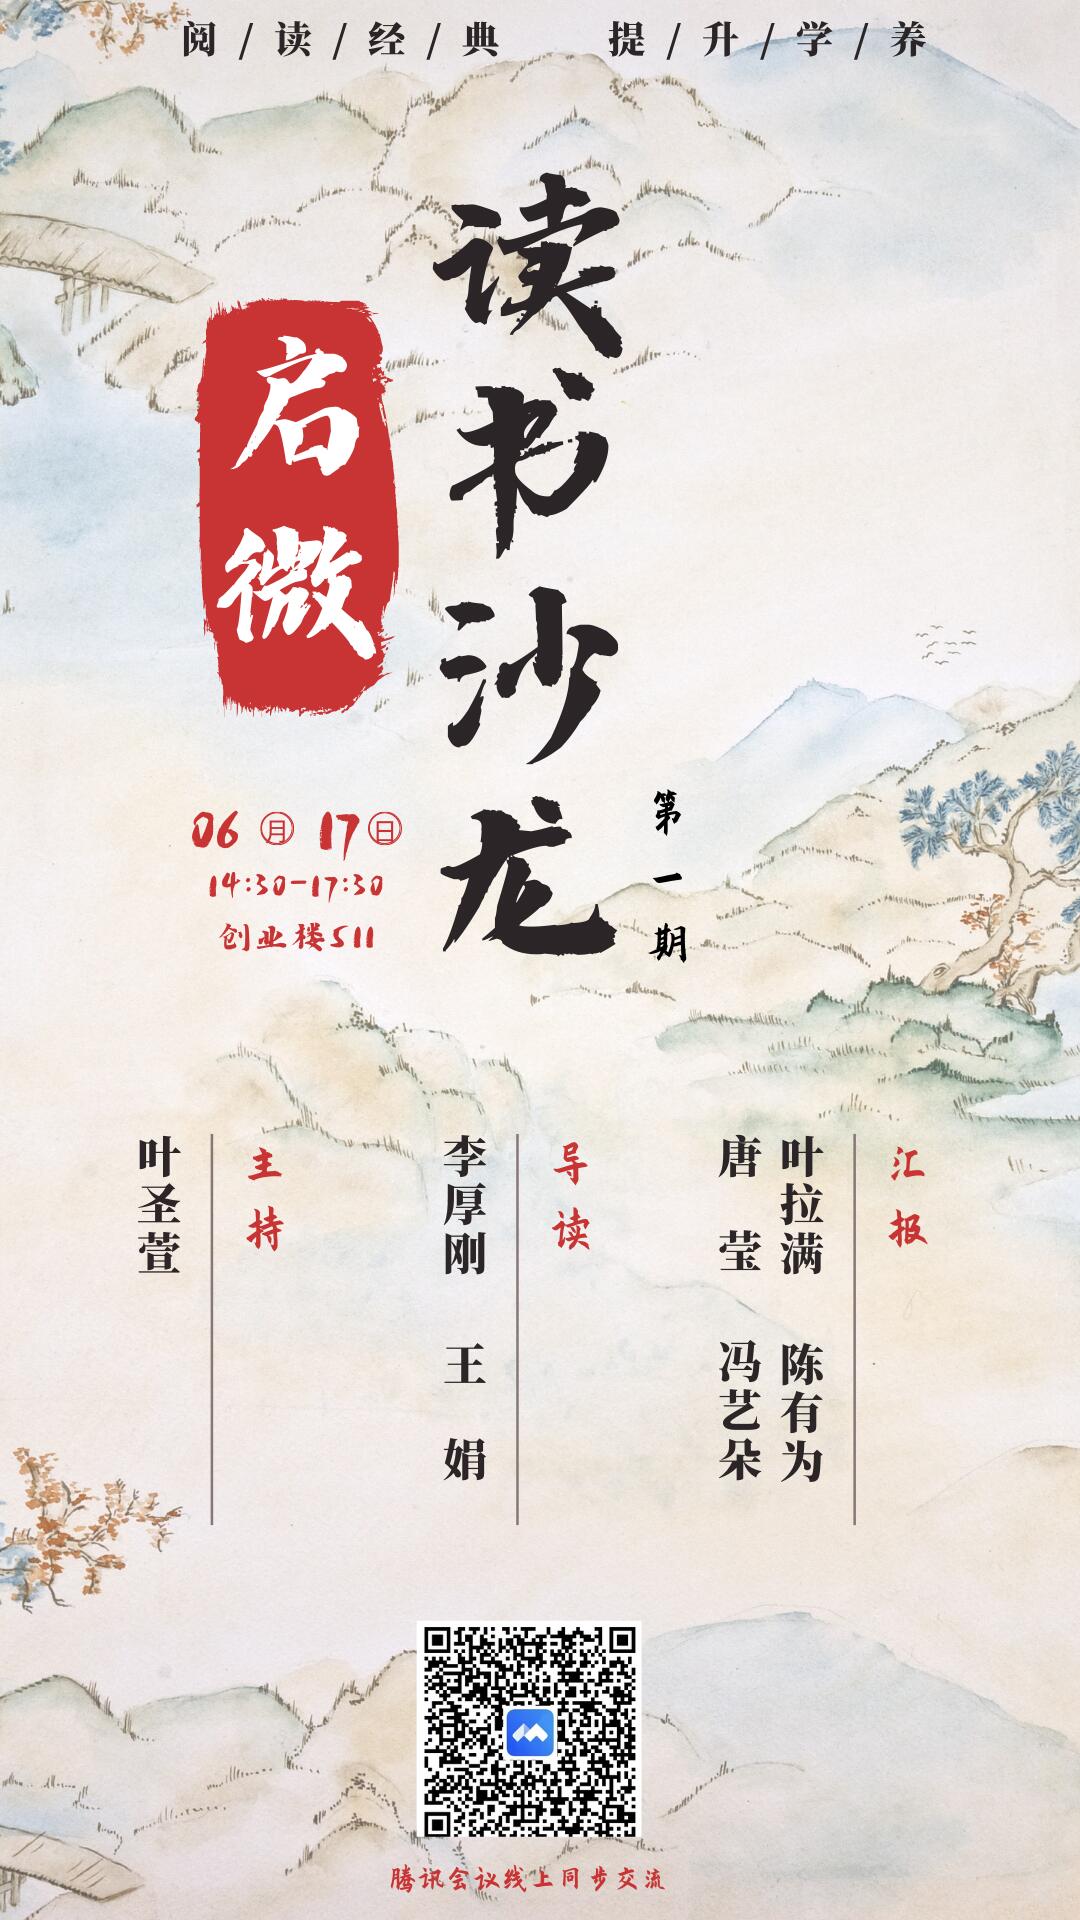 阅/读/经/典 提/升/学/养
读书沙龙
启微
第一期
06月17日
14:30-17:30
创业楼511
汇报
叶拉满 陈有为
唐莹 冯艺朵
导读
李厚刚 王娟
主持
叶圣萱
腾讯会议线上同步交流